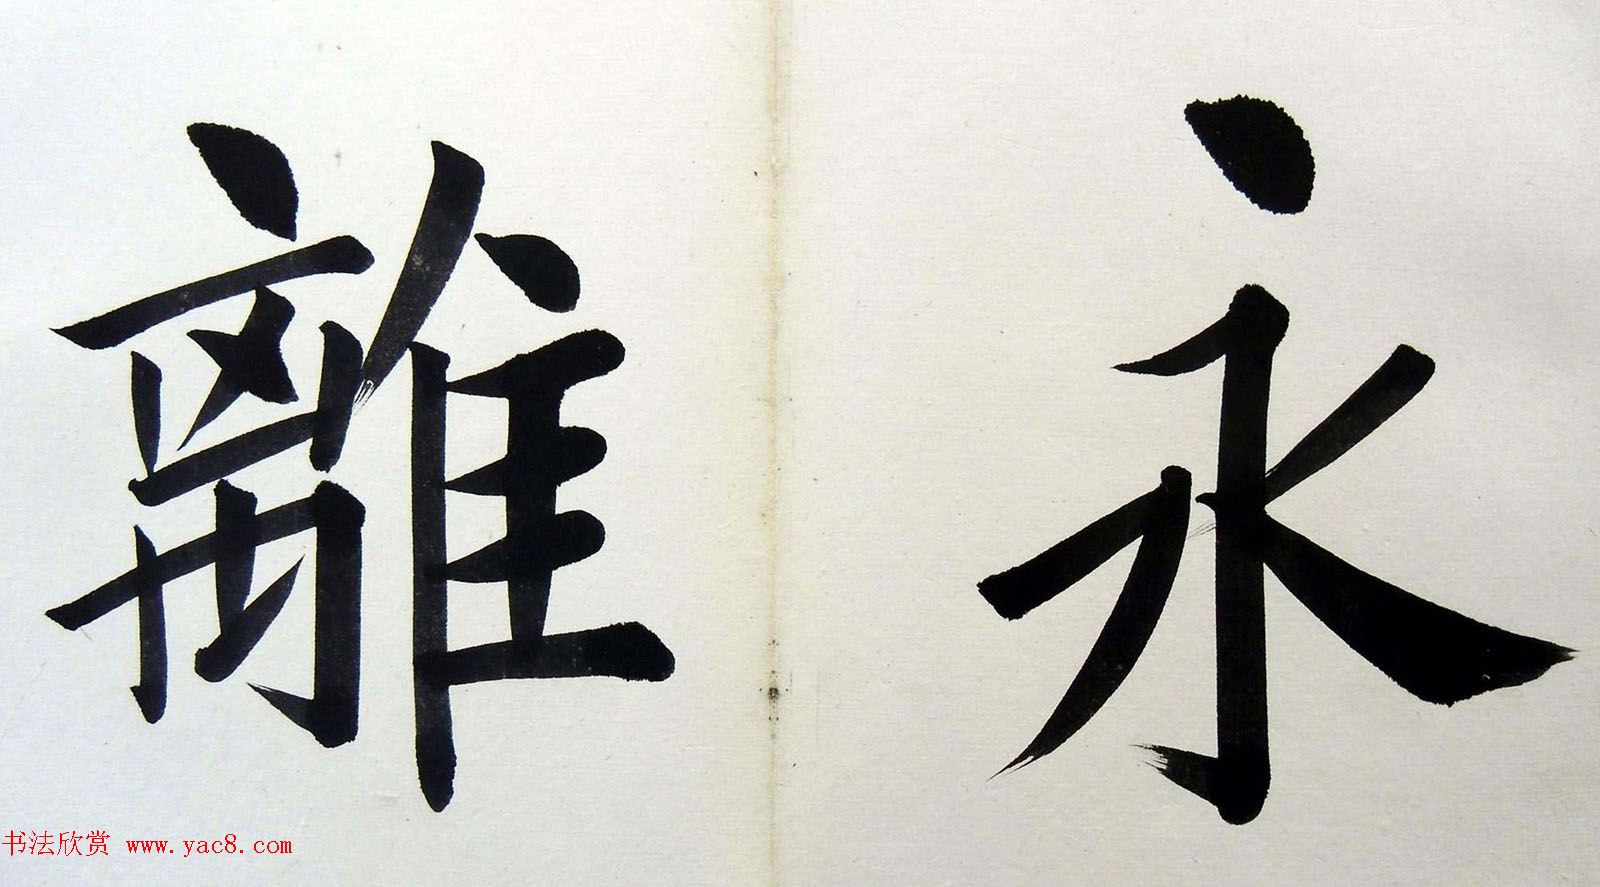 永離
书法欣赏 www.yac8.com